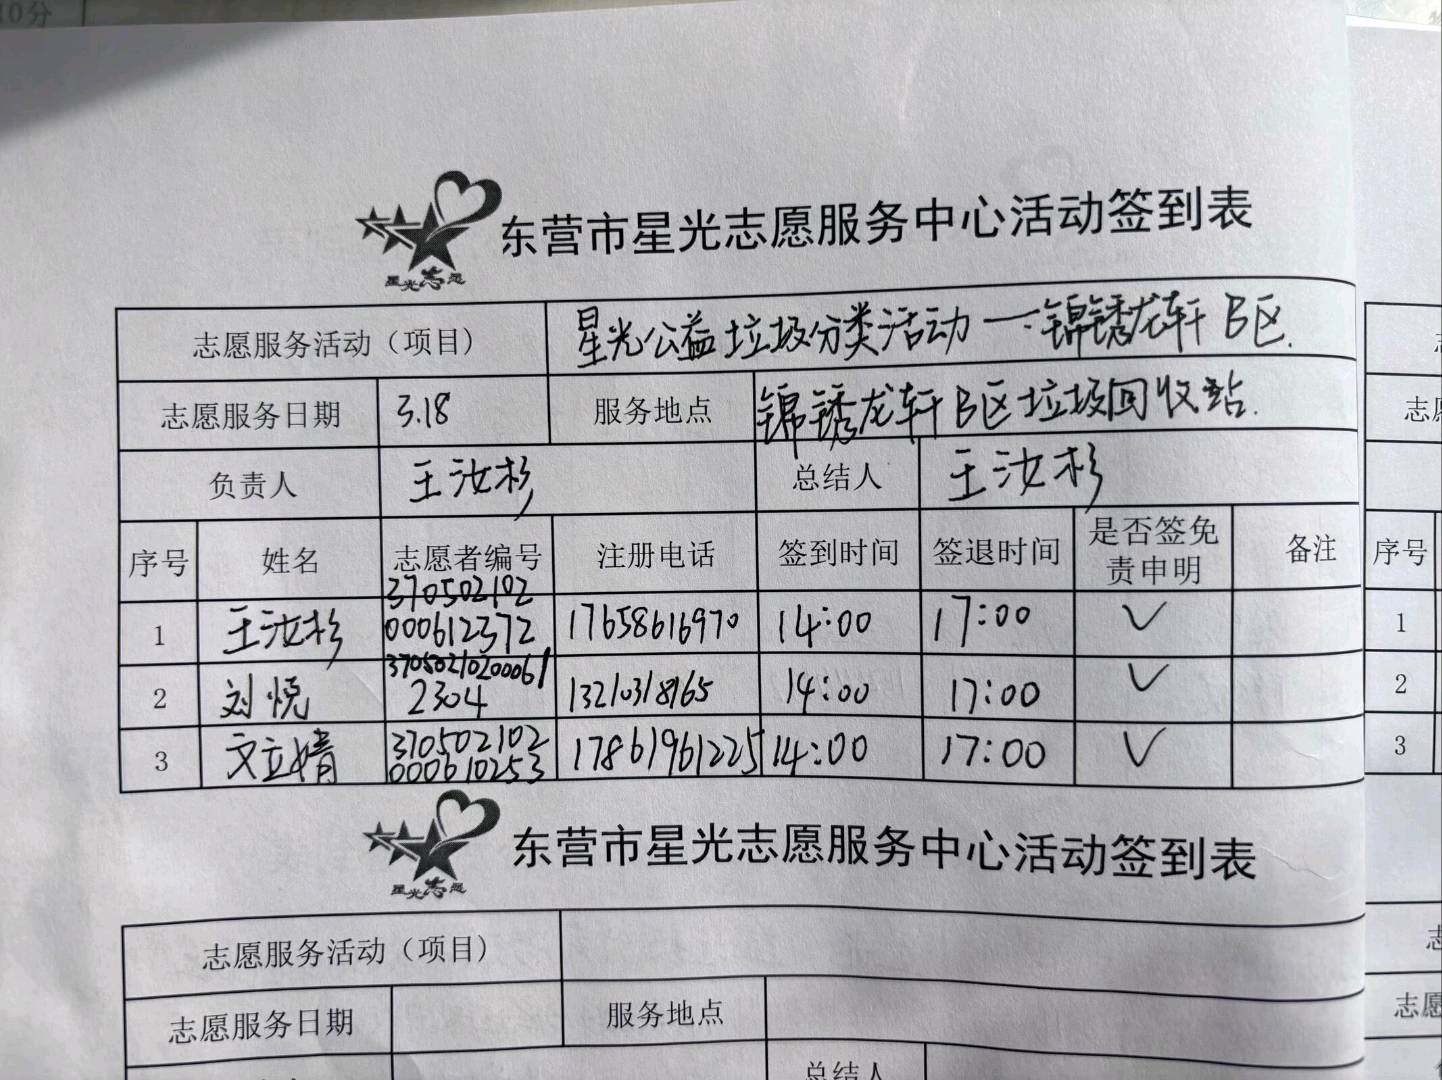 10分
星光志愿
东营市星光志愿服务中心活动签到表
志愿服务活动（项目） 星光公益垃圾分类活动一锦锈龙轩B区.
志愿服务日期 3.18 服务地点 锦锈龙轩B区垃圾回收站.
负责人 王汝杉 总结人 王汝杉
序号 姓名 志愿者编号 注册电话 签到时间 签退时间 是否签免责申明 备注
1 王汝杉 370502102000612372 17658616970 14:00 17:00 ✓
2 刘悦 370502102000612304 13210318965 14:00 17:00 ✓
3 文立婧 370502102000610253 17861961225 14:00 17:00 ✓
星光志愿
东营市星光志愿服务中心活动签到表
志愿服务活动（项目）
志愿服务日期 服务地点
总结人
序号
1
2
3
志愿